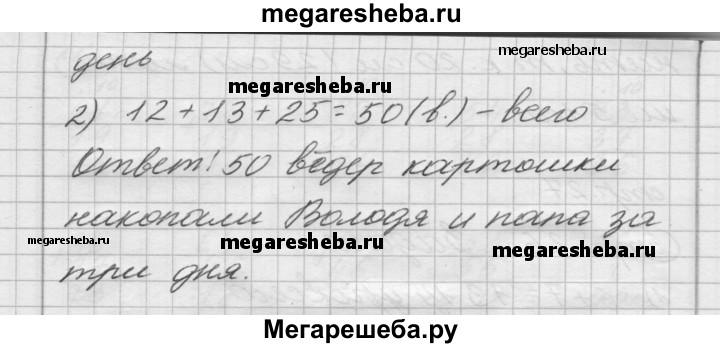 megaresheba.ru
день
megaresheba.ru
2) 12+13+25=50(в.) - всего
Ответ: 50 ведер картошки
накопали Володя и папа за
megaresheba.ru megaresheba.ru megaresheba.ru
три дня.
Мегарешеба.ру